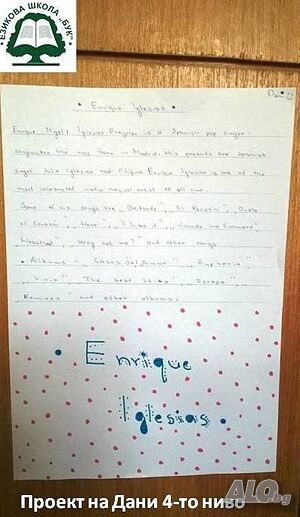 ЕЗИКОВА ШКОЛА „БУК“
Dani
• Enrique Iglesias •
Enrique Migel Iglesias Preysler is a Spanish pop singer-
songwriter. He was born in Madrid. His parents are Spanish
singer Julio Iglesias and Filipina Enrique Iglesias is one of the
most celebrated latin musical artist of all time.
Some of his songs are „Bailando“, „El Perdón“, „Duele
el Corazón“, „Hero“, „I like it“, „Cuando me Enamoro“,
Heartbeat“, „Why not me?“ and other songs.
• Albums - „Cosas del Amor“, „Euphoria“,
„Vivir“, „The best Hits“, „Escape“,
Remixes“ and other albums.
Enrique
Iglesias.
Проект на Дани 4-то ниво
ALO.bg